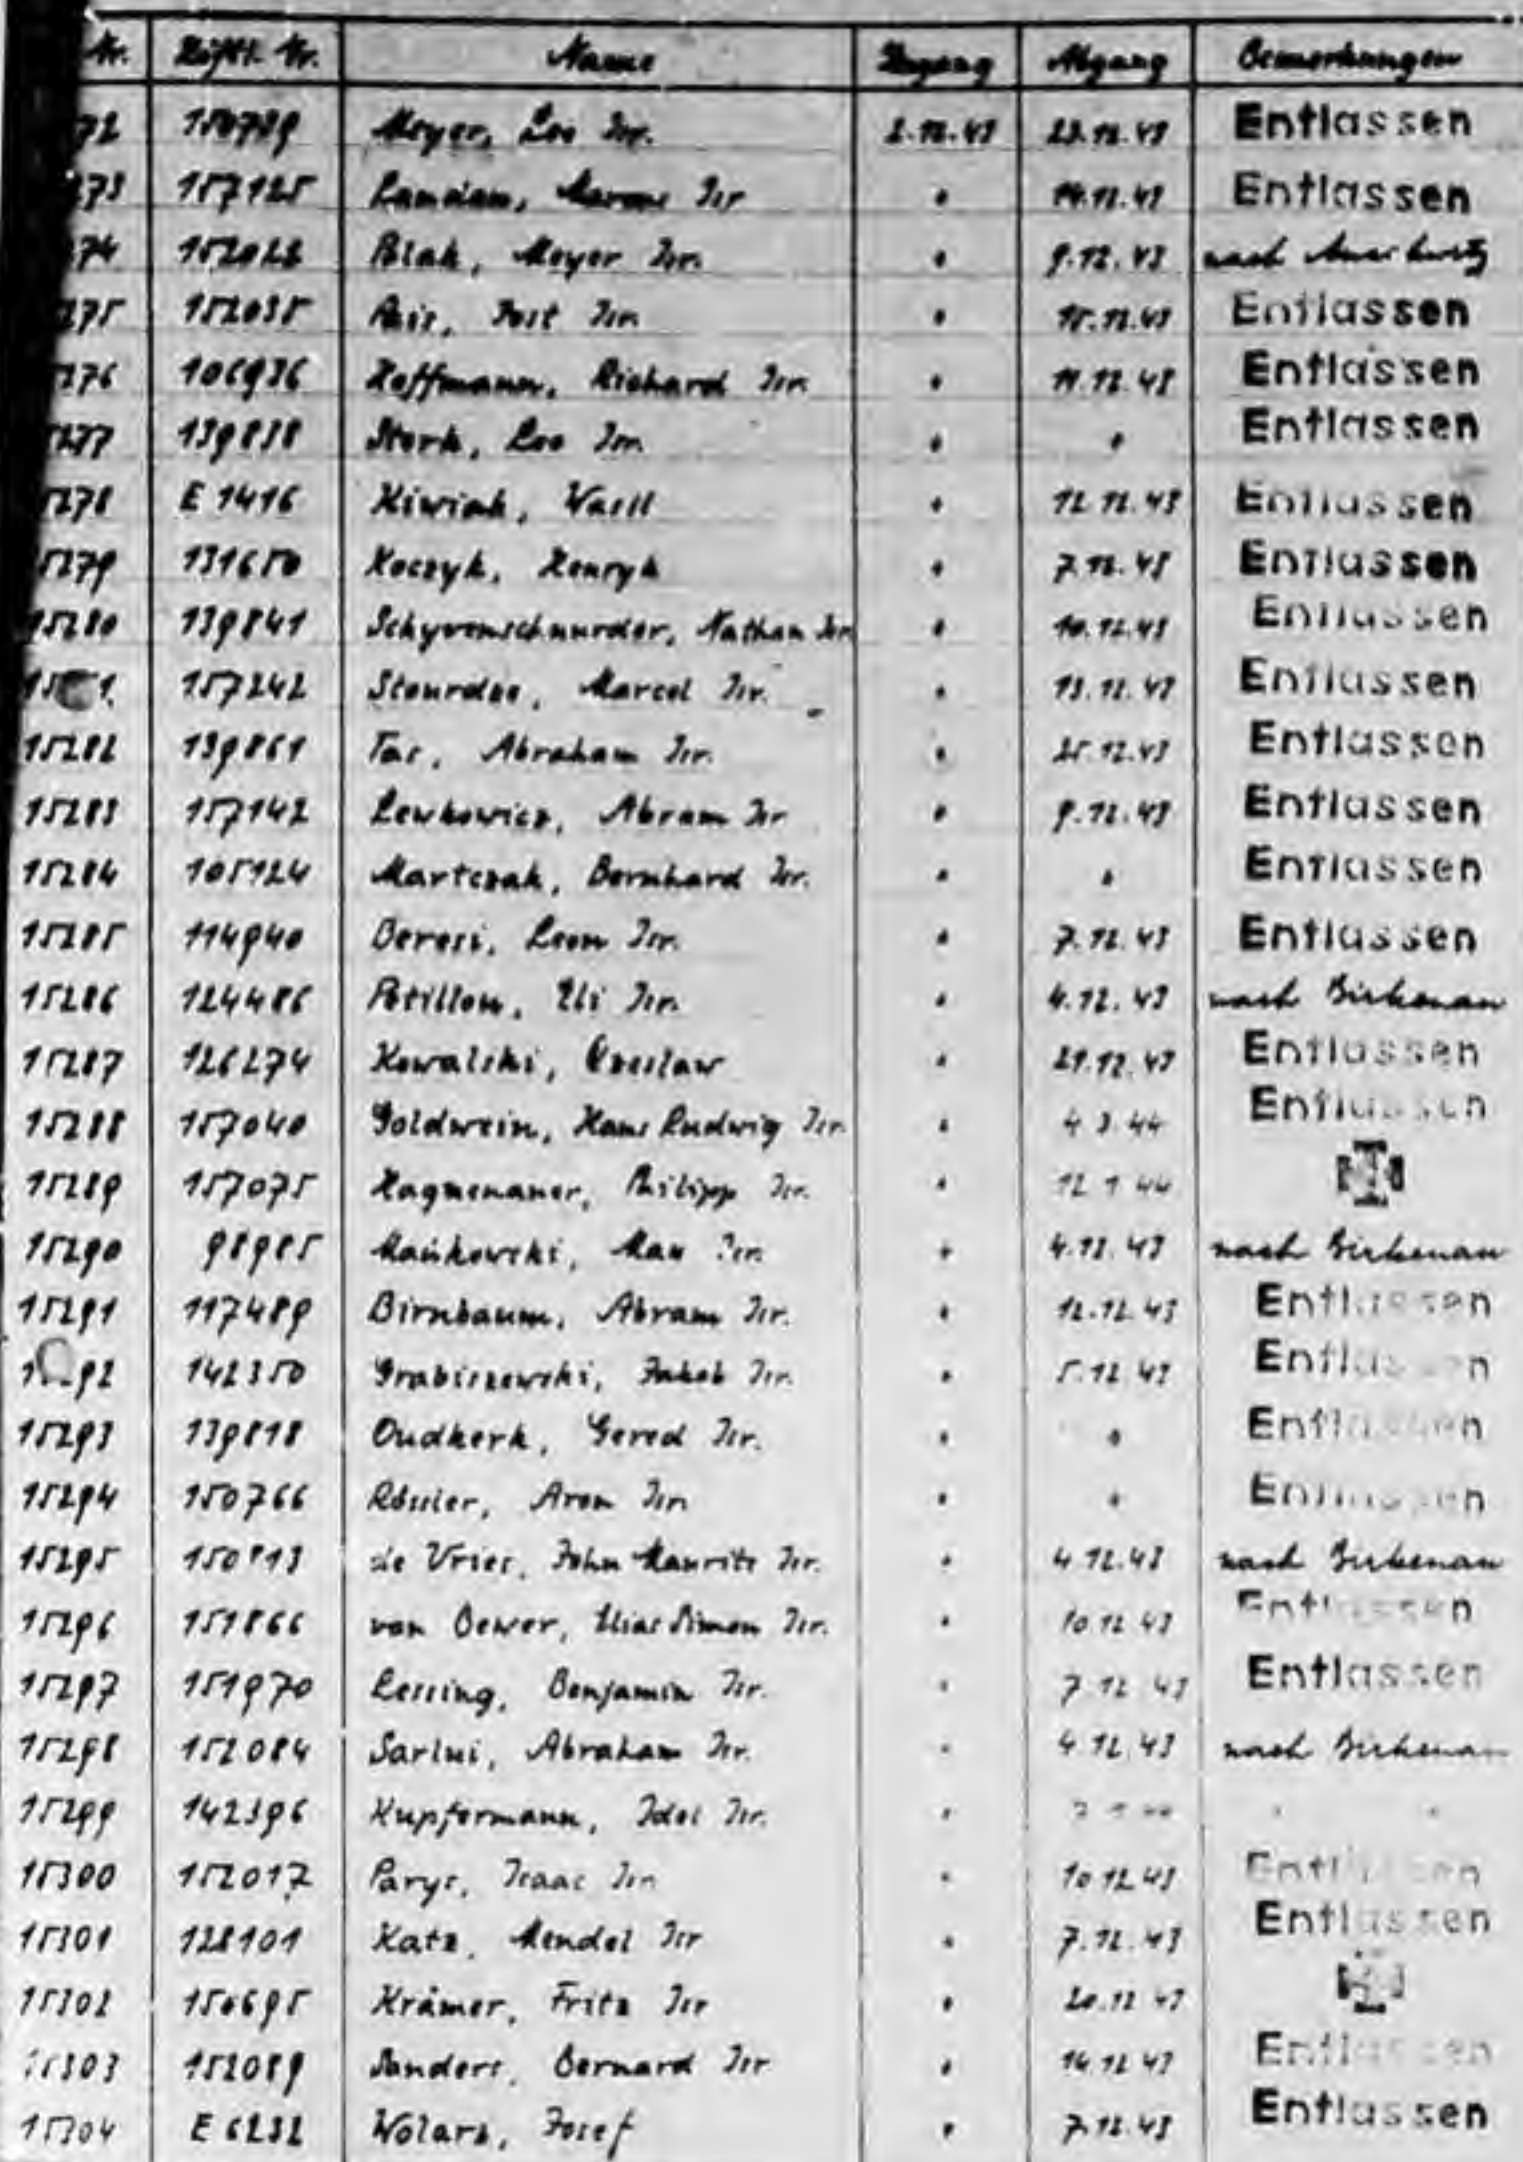 Nr. Häftl. Nr. Name Zugang Abgang Bemerkungen
72 150789 Meyer, Leo Isr. 2.12.43 23.12.43 Entlassen
273 157125 Landau, Isr " 14.12.43 Entlassen
74 152022 Polak, Meyer Isr. " 9.12.43 nach
275 152035 Pais, Jost Isr. " 15.12.43 Entlassen
276 106936 Hoffmann, Richard Isr. " 11.12.43 Entlassen
5277 139838 Sterk, Leo Isr. " " Entlassen
5278 E 1416 Kiwiak, Wasil " 12.12.43 Entlassen
5279 131650 Koczyk, Henryk " 7.12.43 Entlassen
15280 139841 Schyvenschuurder, Nathan Isr " 10.12.43 Entlassen
157242 Stourdze, Marcel Isr. " 13.12.43 Entlassen
15282 139861 Tas, Abraham Isr. " 25.12.43 Entlassen
15283 157142 Lewkowicz, Abram Isr " 9.12.43 Entlassen
15284 105124 Martczak, Bernhard Isr. " " Entlassen
15285 114940 Beresi, Leon Isr. " 7.12.43 Entlassen
15286 124486 Petillon, Eli Isr. " 4.12.43 nach Birkenau
15287 126274 Kowalski, Czeslaw " 21.12.43 Entlassen
15288 157040 Goldwein, Hans Ludwig Isr. " 4 3 44 Entlassen
15289 157075 Haguenauer, Philipp Isr. " 12 1 44
15290 98985 Mańkowski, Max Isr. " 4.12.43 nach Birkenau
15291 117489 Birnbaum, Abram Isr. " 12.12.43 Entlassen
142350 Grabiszewski, Jakob Isr. " 5.12.43 Entlassen
15293 139818 Oudkerk, Gered Isr. " " Entlassen
15294 150766 Rössler, Aron Isr. " " Entlassen
15295 150813 de Vries, John Maurits Isr. " 4 12.43 nach Birkenau
15296 151866 van Bewer, Elias Simon Isr. " 10 12 43 Entlassen
15297 151970 Lessing, Benjamin Isr. " 7 12 43 Entlassen
15298 152084 Sarlui, Abraham Isr. " 4 12 43 nach Birkenau
15299 142396 Kupfermann, Idel Isr. " " "
15300 152017 Parys, Isaac Isr " 10 12 43 Entlassen
15301 128101 Katz, Mendel Isr " 7.12.43 Entlassen
15302 150695 Krämer, Fritz Isr " 20.12 43
15303 152089 Sanders, Bernard Isr " 14 12 43 Entlassen
15304 E 6232 Wolarz, Josef " 7.12.43 Entlassen